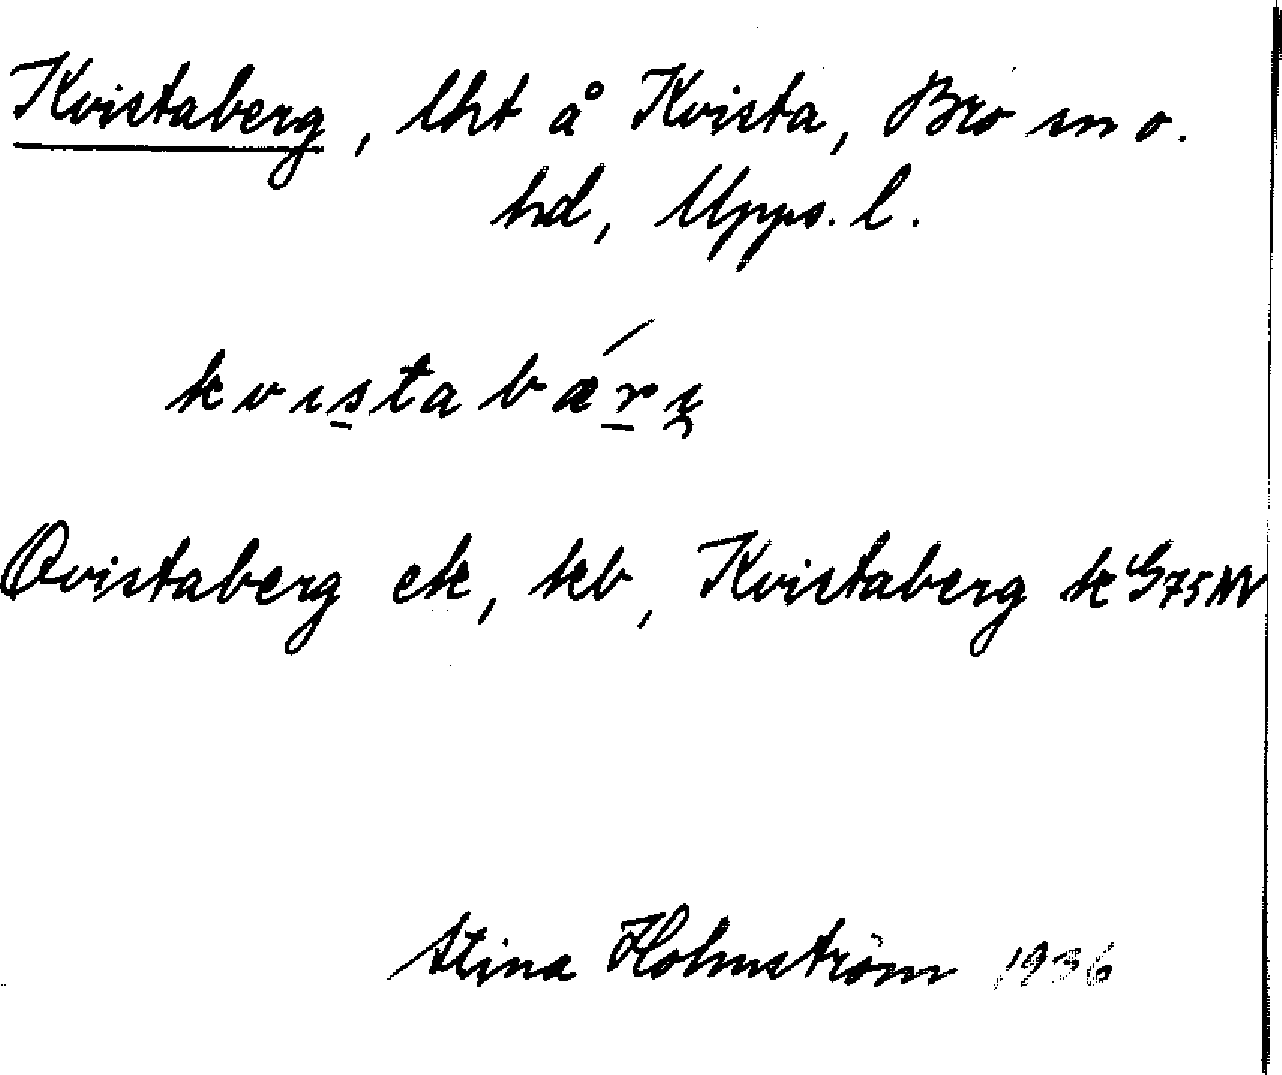 Kvistaberg, lht å Kvista, Bro sn o.
hd, Upps. l.
kvistabárį
Qvistaberg ek, kb, Kvistaberg k G75NV
Stina Holmström 1936